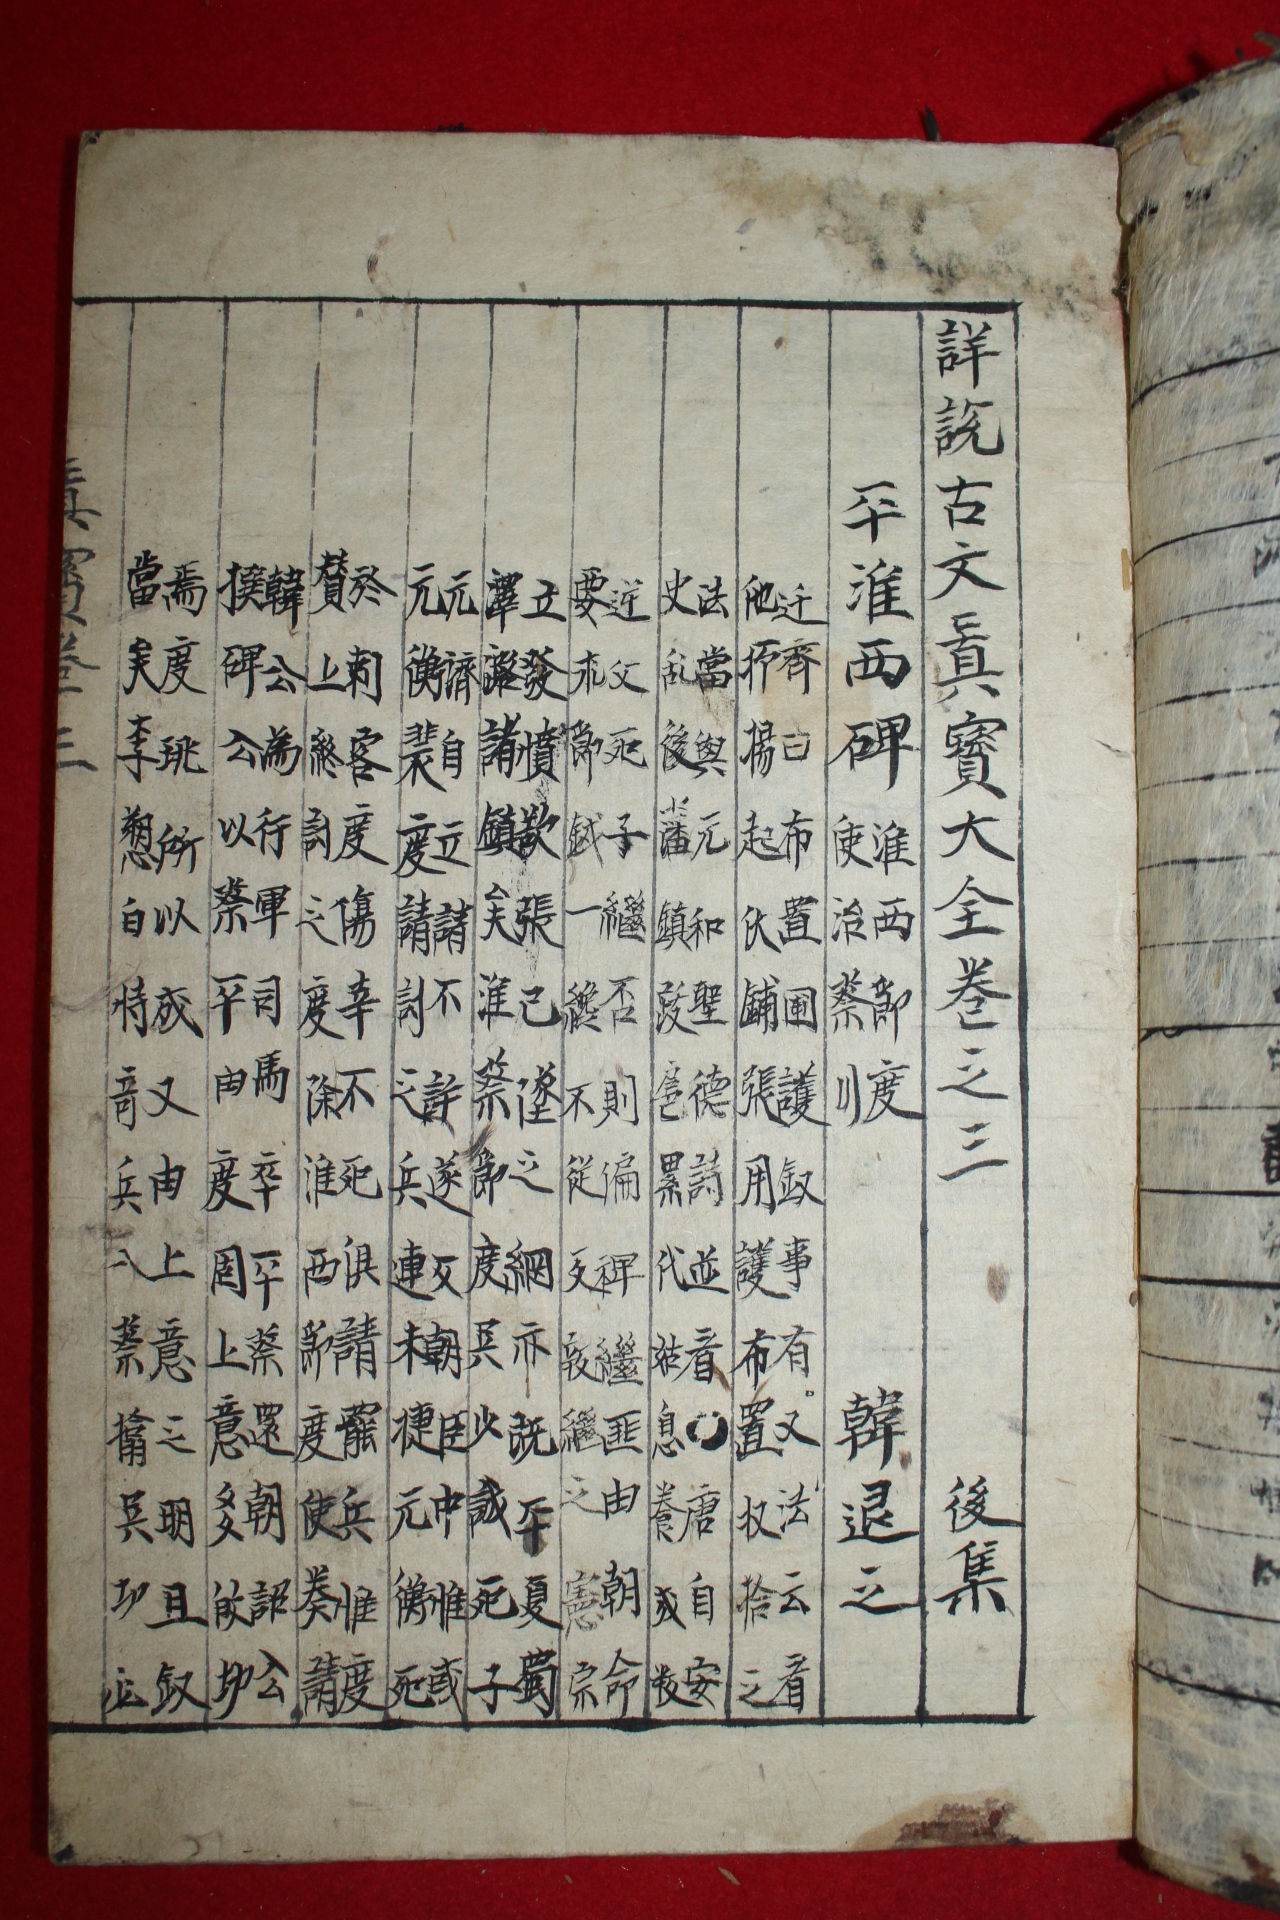 詳說古文眞寶大全卷之三 後集
平淮西碑 淮西節度 韓退之
使治蔡川
迂齊曰布置圍護叙事有又法云看
他抑揚起伏鋪張用護布置权拾之
法當與元和聖德詩並看○唐自安
史乱後藩鎭跋扈累代姑息養成
近父死子繼否則偏裨繼匪由朝命
要求節鉞一不從繼之憲宗
立發憤欲張已墜之綱亦旣平夏蜀
澤潞諸鎭矣淮蔡節度吳少誠死子
元濟自立請不許遂朝臣中惟或
元衡裴度請討之兵連未捷元衡死
於刺客度傷幸不死俱請罷兵惟度
賛上終討之度除淮西節度使奏請
韓公爲行軍司馬卒平蔡還朝詔公
撰碑公以蔡平由度固上意多故功
焉度所以成又由上意之明且叙
當矣李愬自恃奇兵入蔡擒吳功
眞寶卷三